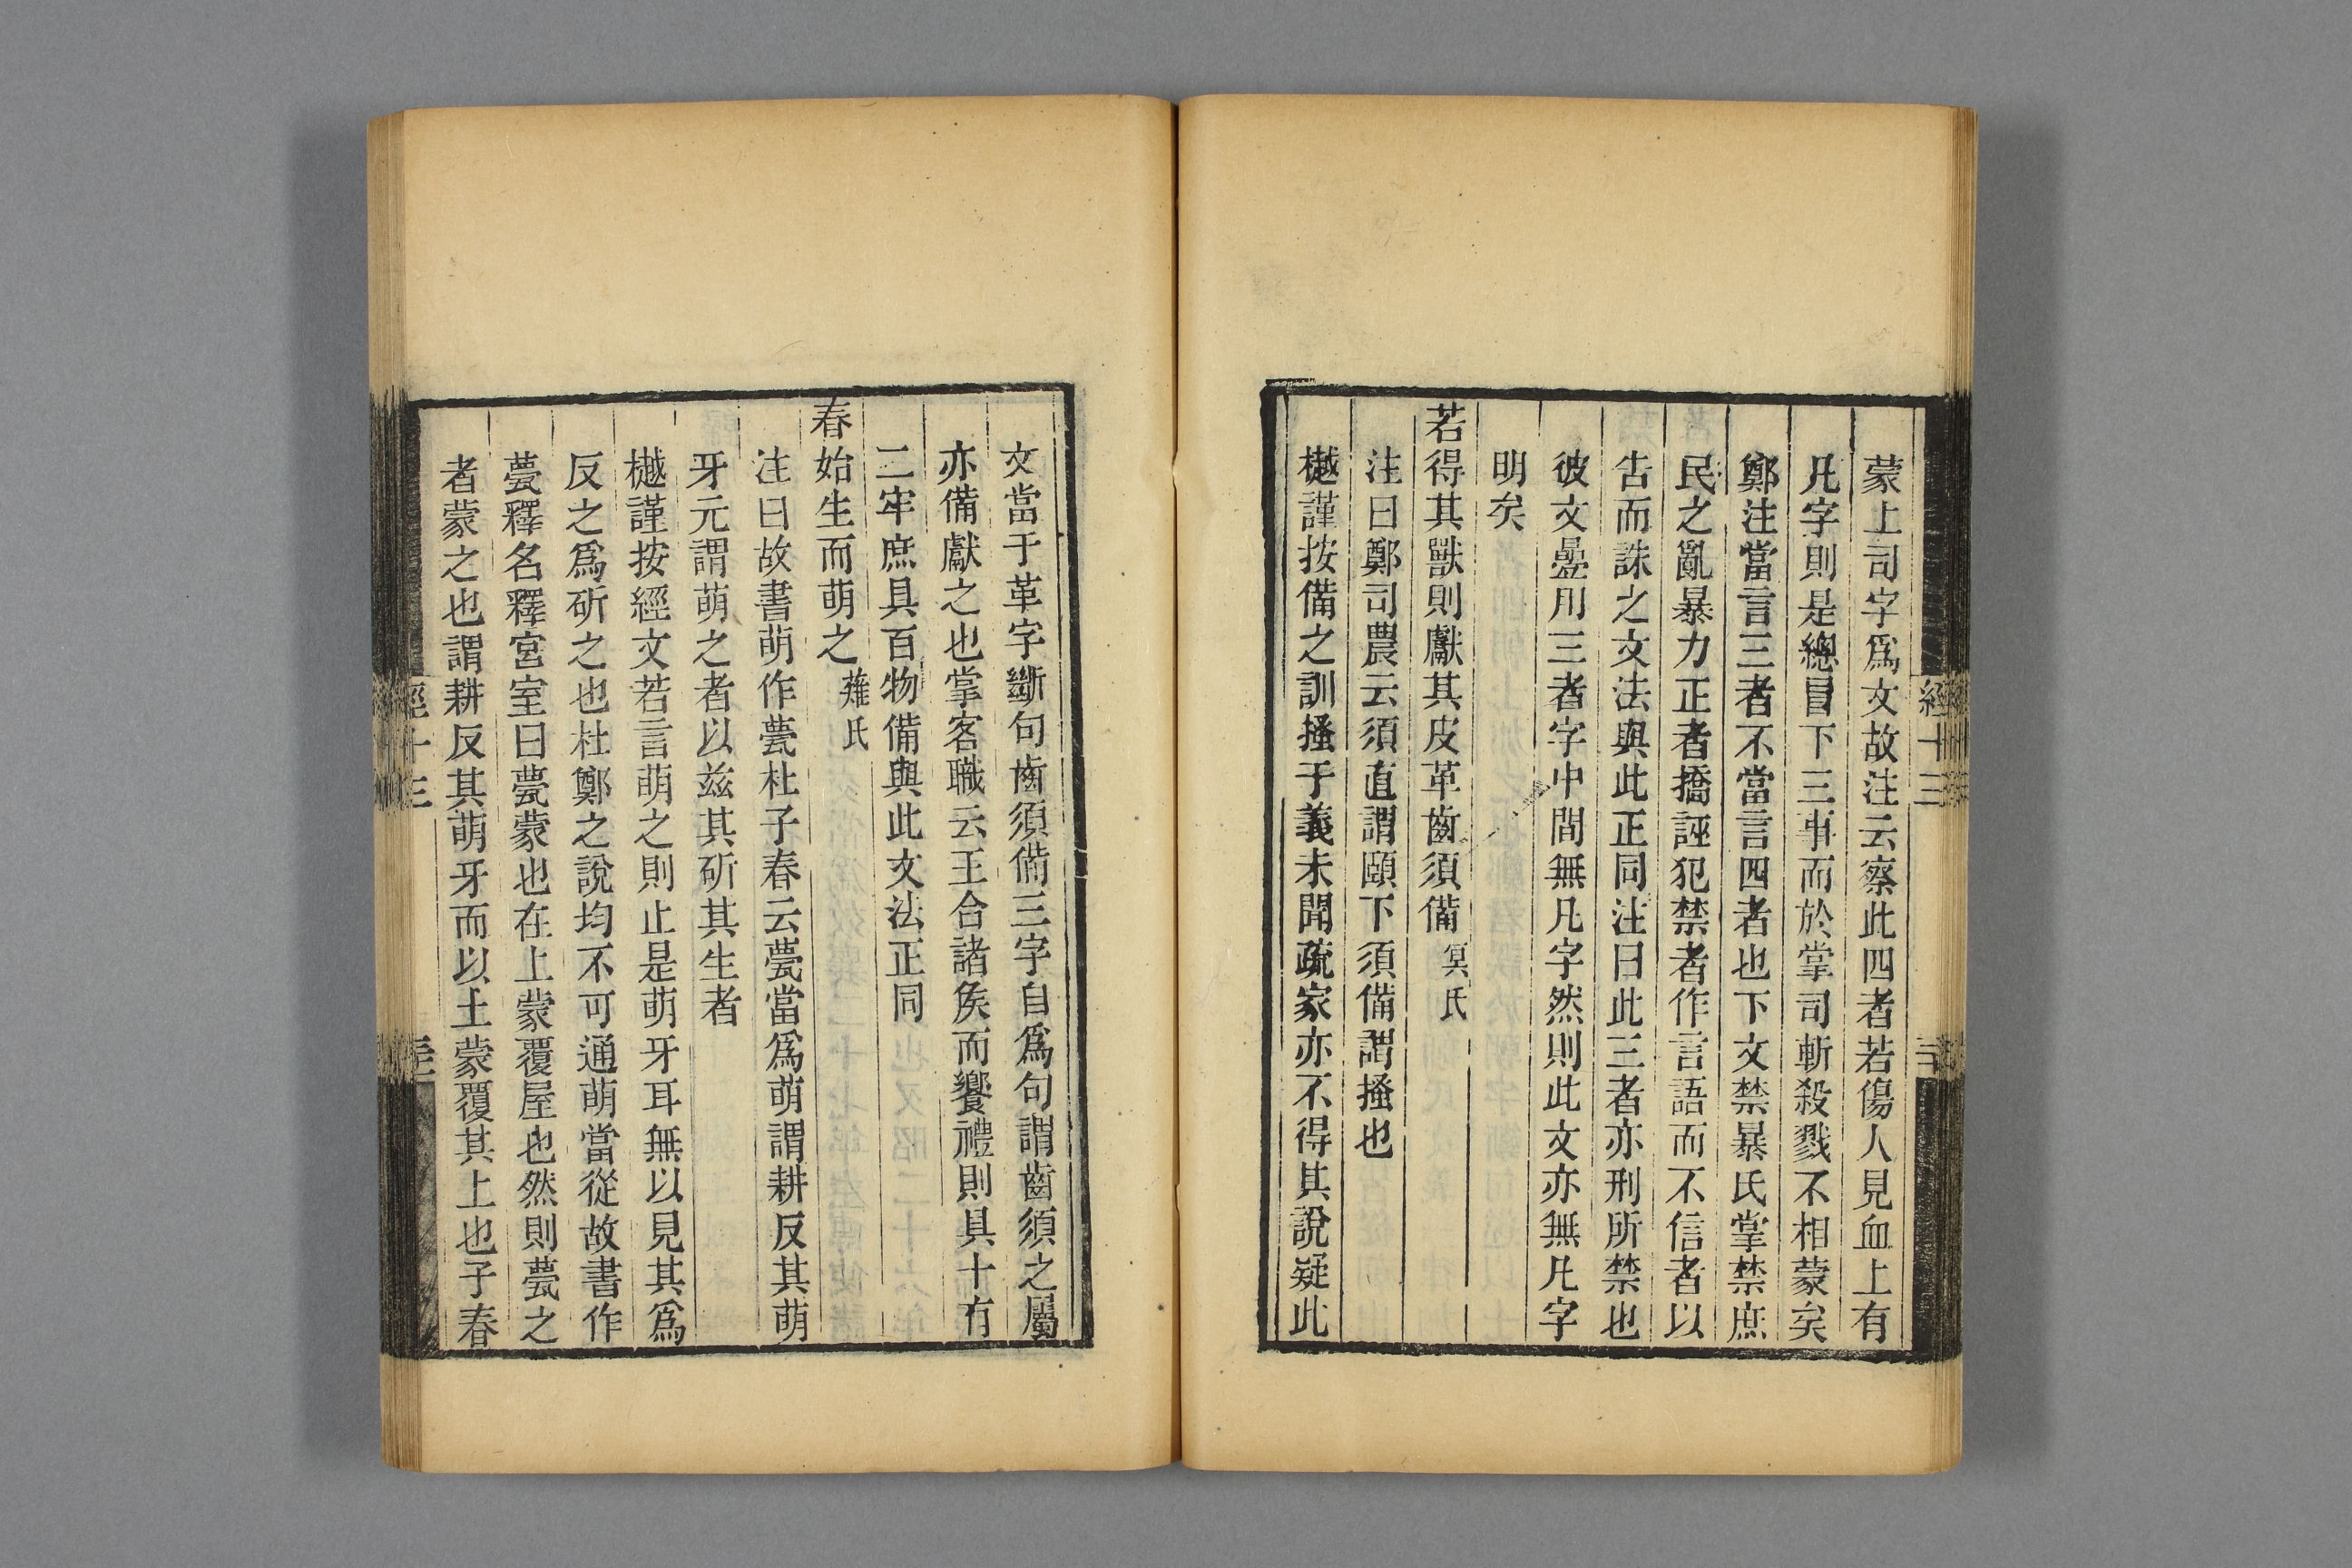 蒙上司字爲文故注云察此四者若傷人見血上有
凡字則是總目下三事而於掌司斬殺戮不相蒙矣
鄭注當言三者不當言四者也下文禁暴氏掌禁庶
民之亂暴力正者撟誣犯禁者作言語而不信者以
告而誅之文法與此正同注曰此三者亦刑所禁也
彼文疊用三者字中間無凡字然則此文亦無凡字
明矣
若得其獸則獻其皮革齒須備冥氏
注曰鄭司農云須直謂頤下須備謂搔也
樾謹按備之訓搔于義未聞疏家亦不得其說疑此
文當于革字斷句齒須備三字自爲句謂齒須之屬
亦備獻之也掌客職云王合諸矦而饗禮則具十有
二牢庶具百物備與此文法正同
春始生而萌之薙氏
注曰故書萌作甍杜子春云甍當爲萌謂耕反其萌
牙元謂萌之者以兹其斫其生者
樾謹按經文若言萌之則止是萌牙耳無以見其爲
反之爲斫之也杜鄭之說均不可通萌當從故書作
甍釋名釋宮室曰甍蒙也在上蒙覆屋也然則甍之
者蒙之也謂耕反其萌牙而以土蒙覆其上也子春
經十三
經十三